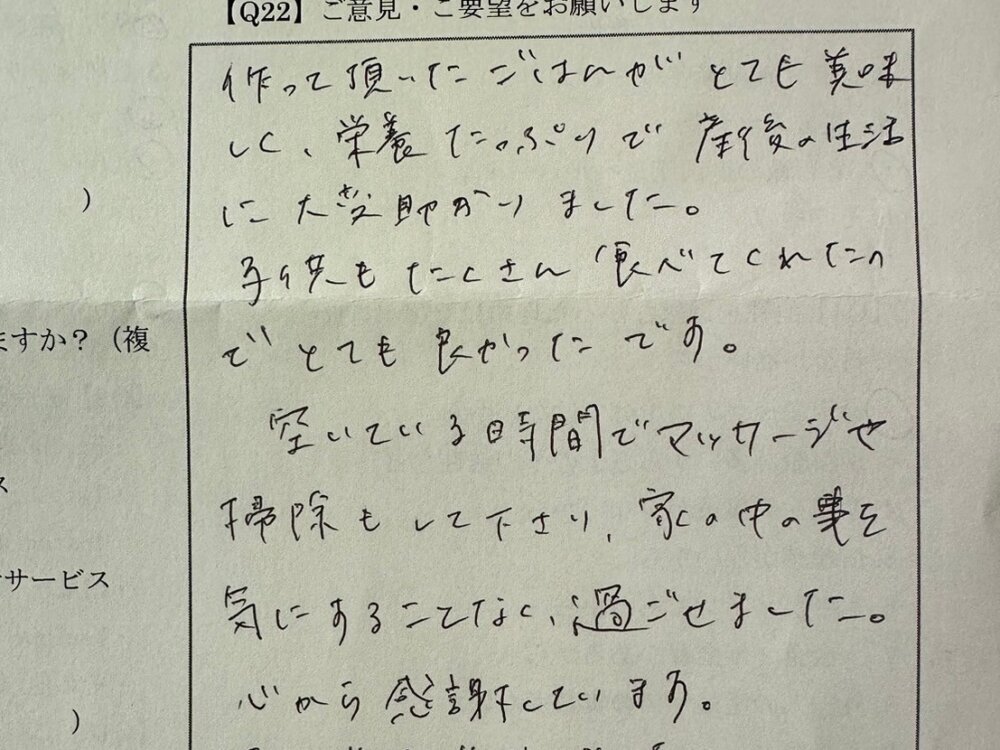 【Q22】ご意見・ご要望をお願いします
作って頂いたごはんがとても美味
しく、栄養たっぷりで産後の生活
に大変助かりました。
子供もたくさん食べてくれたの
でとても良かったです。
）
ますか？（複
空いている時間でマッサージや
ス
掃除もして下さり、家の中の事を
サービス
気にすることなく、過ごせました。
心から感謝しています。
）